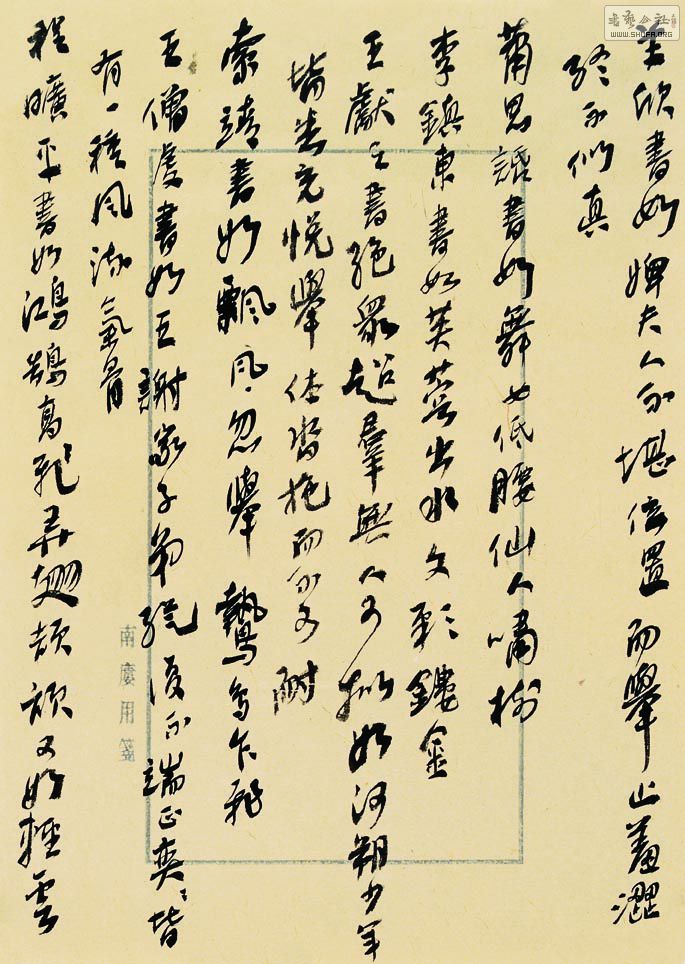 羊欣書如婢夫人不堪位置而舉止羞澀
終不似真
蕭思話書如舞女低腰仙人嘯樹
李鎮東書如芙蓉出水文彩鏤金
王獻之書絕眾超羣無人可擬如河朔少年
皆悉充悅舉體沓拖而不可耐
索靖書如飄風忽舉鷙鳥乍飛
王僧虔書如王謝家子弟縱復不端正奕奕皆
有一種風流氣骨
程曠平書如鴻鵠高飛弄翅頡頏又如輕雲
南廔用箋
書藝公社
WWW.SHUFA.ORG